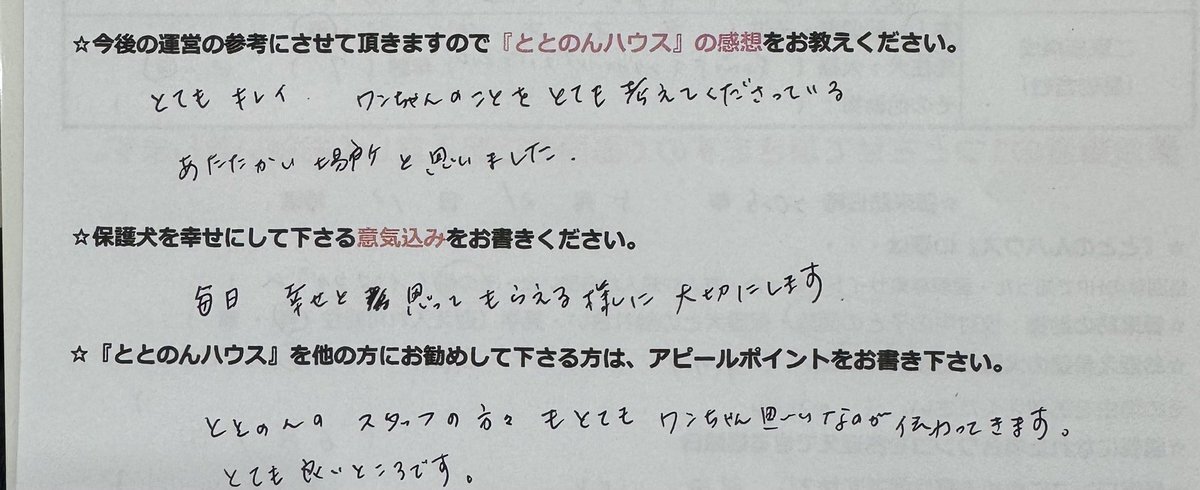 ☆今後の運営の参考にさせて頂きますので『ととのんハウス』の感想をお教えください。
とてもキレイ. ワンちゃんのことをとても考えてくださっている
あたたかい場所と思いました.
☆保護犬を幸せにして下さる意気込みをお書きください。
毎日 幸せと思ってもらえる様に大切にします.
☆『ととのんハウス』を他の方にお勧めして下さる方は、アピールポイントをお書き下さい。
ととのんのスタッフの方々もとてもワンちゃん思いなのが伝わってきます。
とても良いところです。